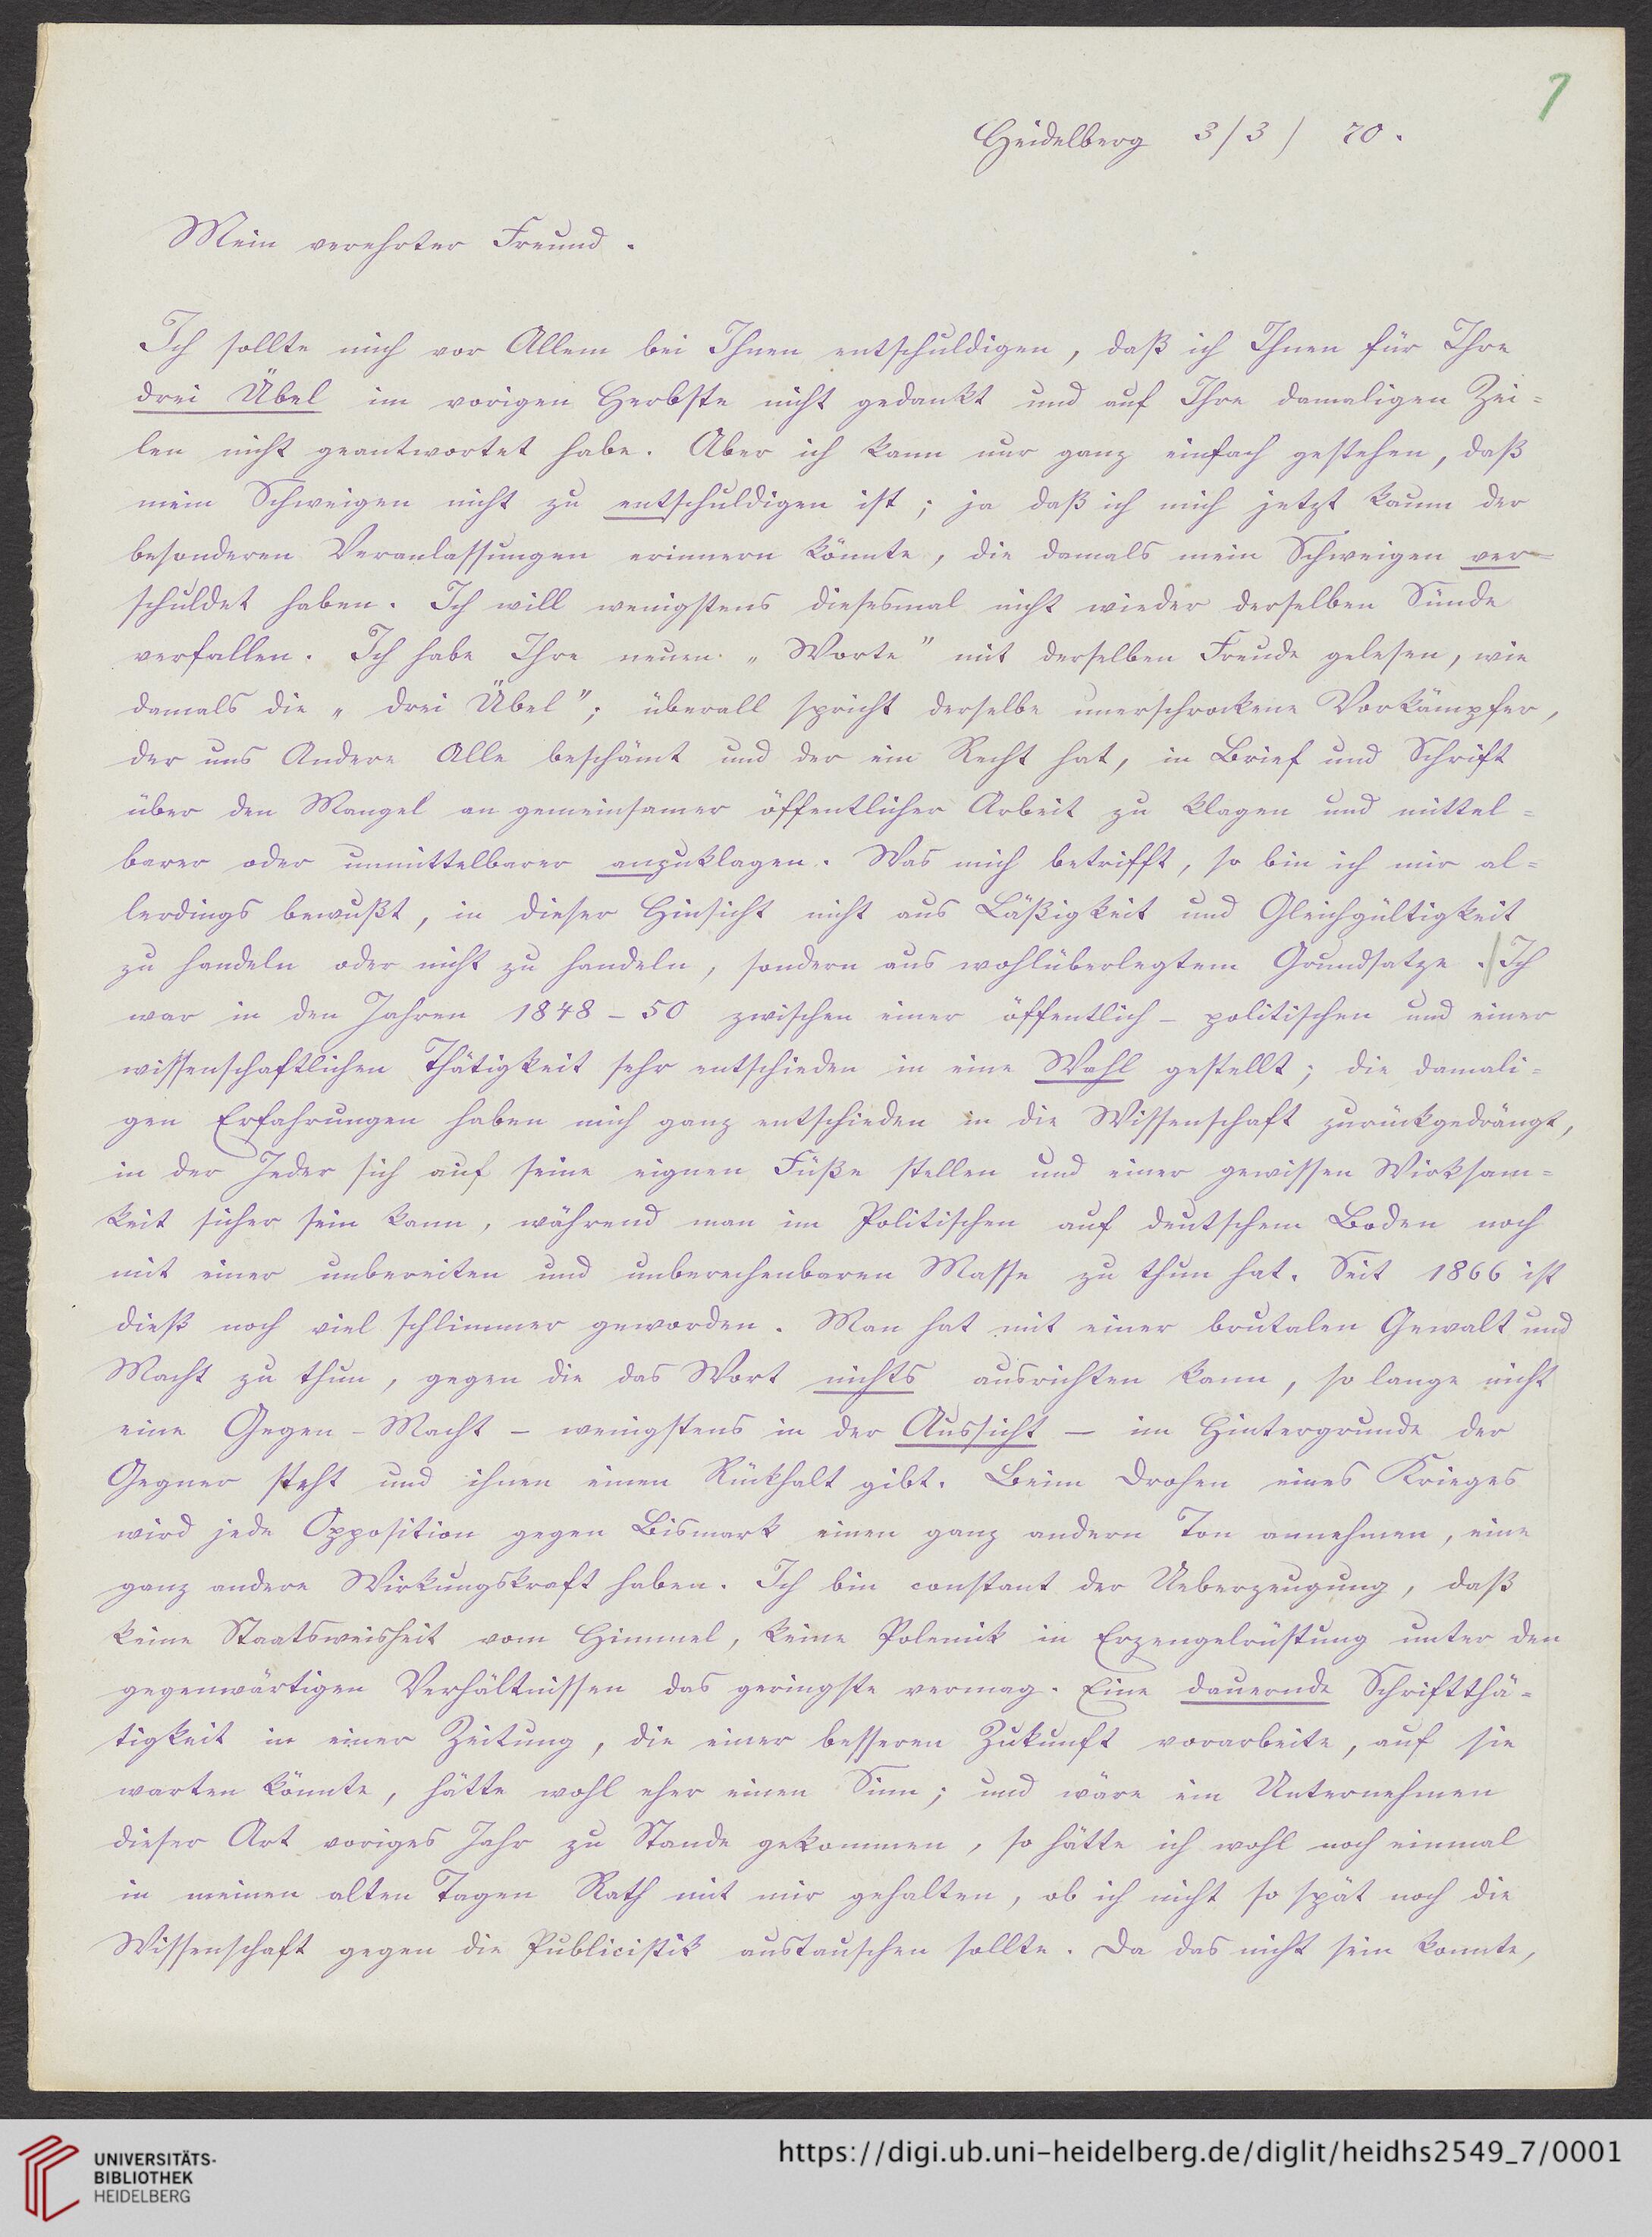 1
Heidelberg 3/3/ 70.
Mein verehrter Freund.
Ich sollte mich vor Allem bei Ihnen entschuldigen, daß ich Ihnen für Ihre
drei Übel im vorigen Herbste nicht gedankt und auf Ihre damaligen Zei=
len nicht geantwortet habe. Aber ich kann nur ganz einfach gestehen, daß
mein Schweigen nicht zu entschuldigen ist; ja daß ich mich jetzt kaum der
besonderen Veranlassungen erinnern könnte, die damals mein Schweigen ver=
schuldet haben. Ich will wenigstens diesesmal nicht wieder derselben Sünde
verfallen. Ich habe Ihre neuen „Worte" mit derselben Freude gelesen, wie
damals die „drei Übel"; überall spricht derselbe unerschrockene Vorkämpfer,
der uns Andere Alle beschämt und der ein Recht hat, in Brief und Schrift
über den Mangel an gemeinsamer öffentlicher Arbeit zu klagen und mittel=
barer oder unmittelbarer anzuklagen. Was mich betrifft, so bin ich mir al=
lerdings bewußt, in dieser Hinsicht nicht aus Läßigkeit und Gleichgültigkeit
zu handeln oder nicht zu handeln, sondern aus wohlüberlegtem Grundsatze. / Ich
war in den Jahren 1848–50 zwischen einer öffentlich-politischen und einer
wissenschaftlichen Thätigkeit sehr entschieden in eine Wahl gestellt; die damali=
gen Erfahrungen haben mich ganz entschieden in die Wissenschaft zurückgedrängt,
in der Jeder sich auf seine eignen Füße stellen und einer gewissen Wirksam=
keit sicher sein kann, während man im Politischen auf deutschem Boden noch
mit einer unbereiten und unberechenbaren Masse zu thun hat. Seit 1866 ist
dieß noch viel schlimmer geworden. Man hat mit einer brutalen Gewalt und
Macht zu thun, gegen die das Wort nichts ausrichten kann, so lange nicht
eine Gegen-Macht – wenigstens in der Aussicht – im Hintergrunde der
Gegner steht und ihnen einen Rückhalt gibt. Beim Drohen eines Krieges
wird jede Opposition gegen Bismark einen ganz andern Ton annehmen, eine
ganz andere Wirkungskraft haben. Ich bin constant der Ueberzeugung, daß
keine Staatsweisheit vom Himmel, keine Polemik in Erzengelrüstung unter den
gegenwärtigen Verhältnissen das geringste vermag. Eine dauernde Schriftthä=
tigkeit in einer Zeitung, die einer besseren Zukunft vorarbeite, auf sie
warten könnte, hätte wohl eher einen Sinn; und wäre ein Unternehmen
dieser Art voriges Jahr zu Stande gekommen, so hätte ich wohl noch einmal
in meinen alten Tagen Rath mit mir gehalten, ob ich nicht so spät noch die
Wissenschaft gegen die Publicistik austauschen sollte. Da das nicht sein konnte,
UNIVERSITÄTS-
BIBLIOTHEK
HEIDELBERG
https://digi.ub.uni-heidelberg.de/diglit/heidhs2549_7/0001